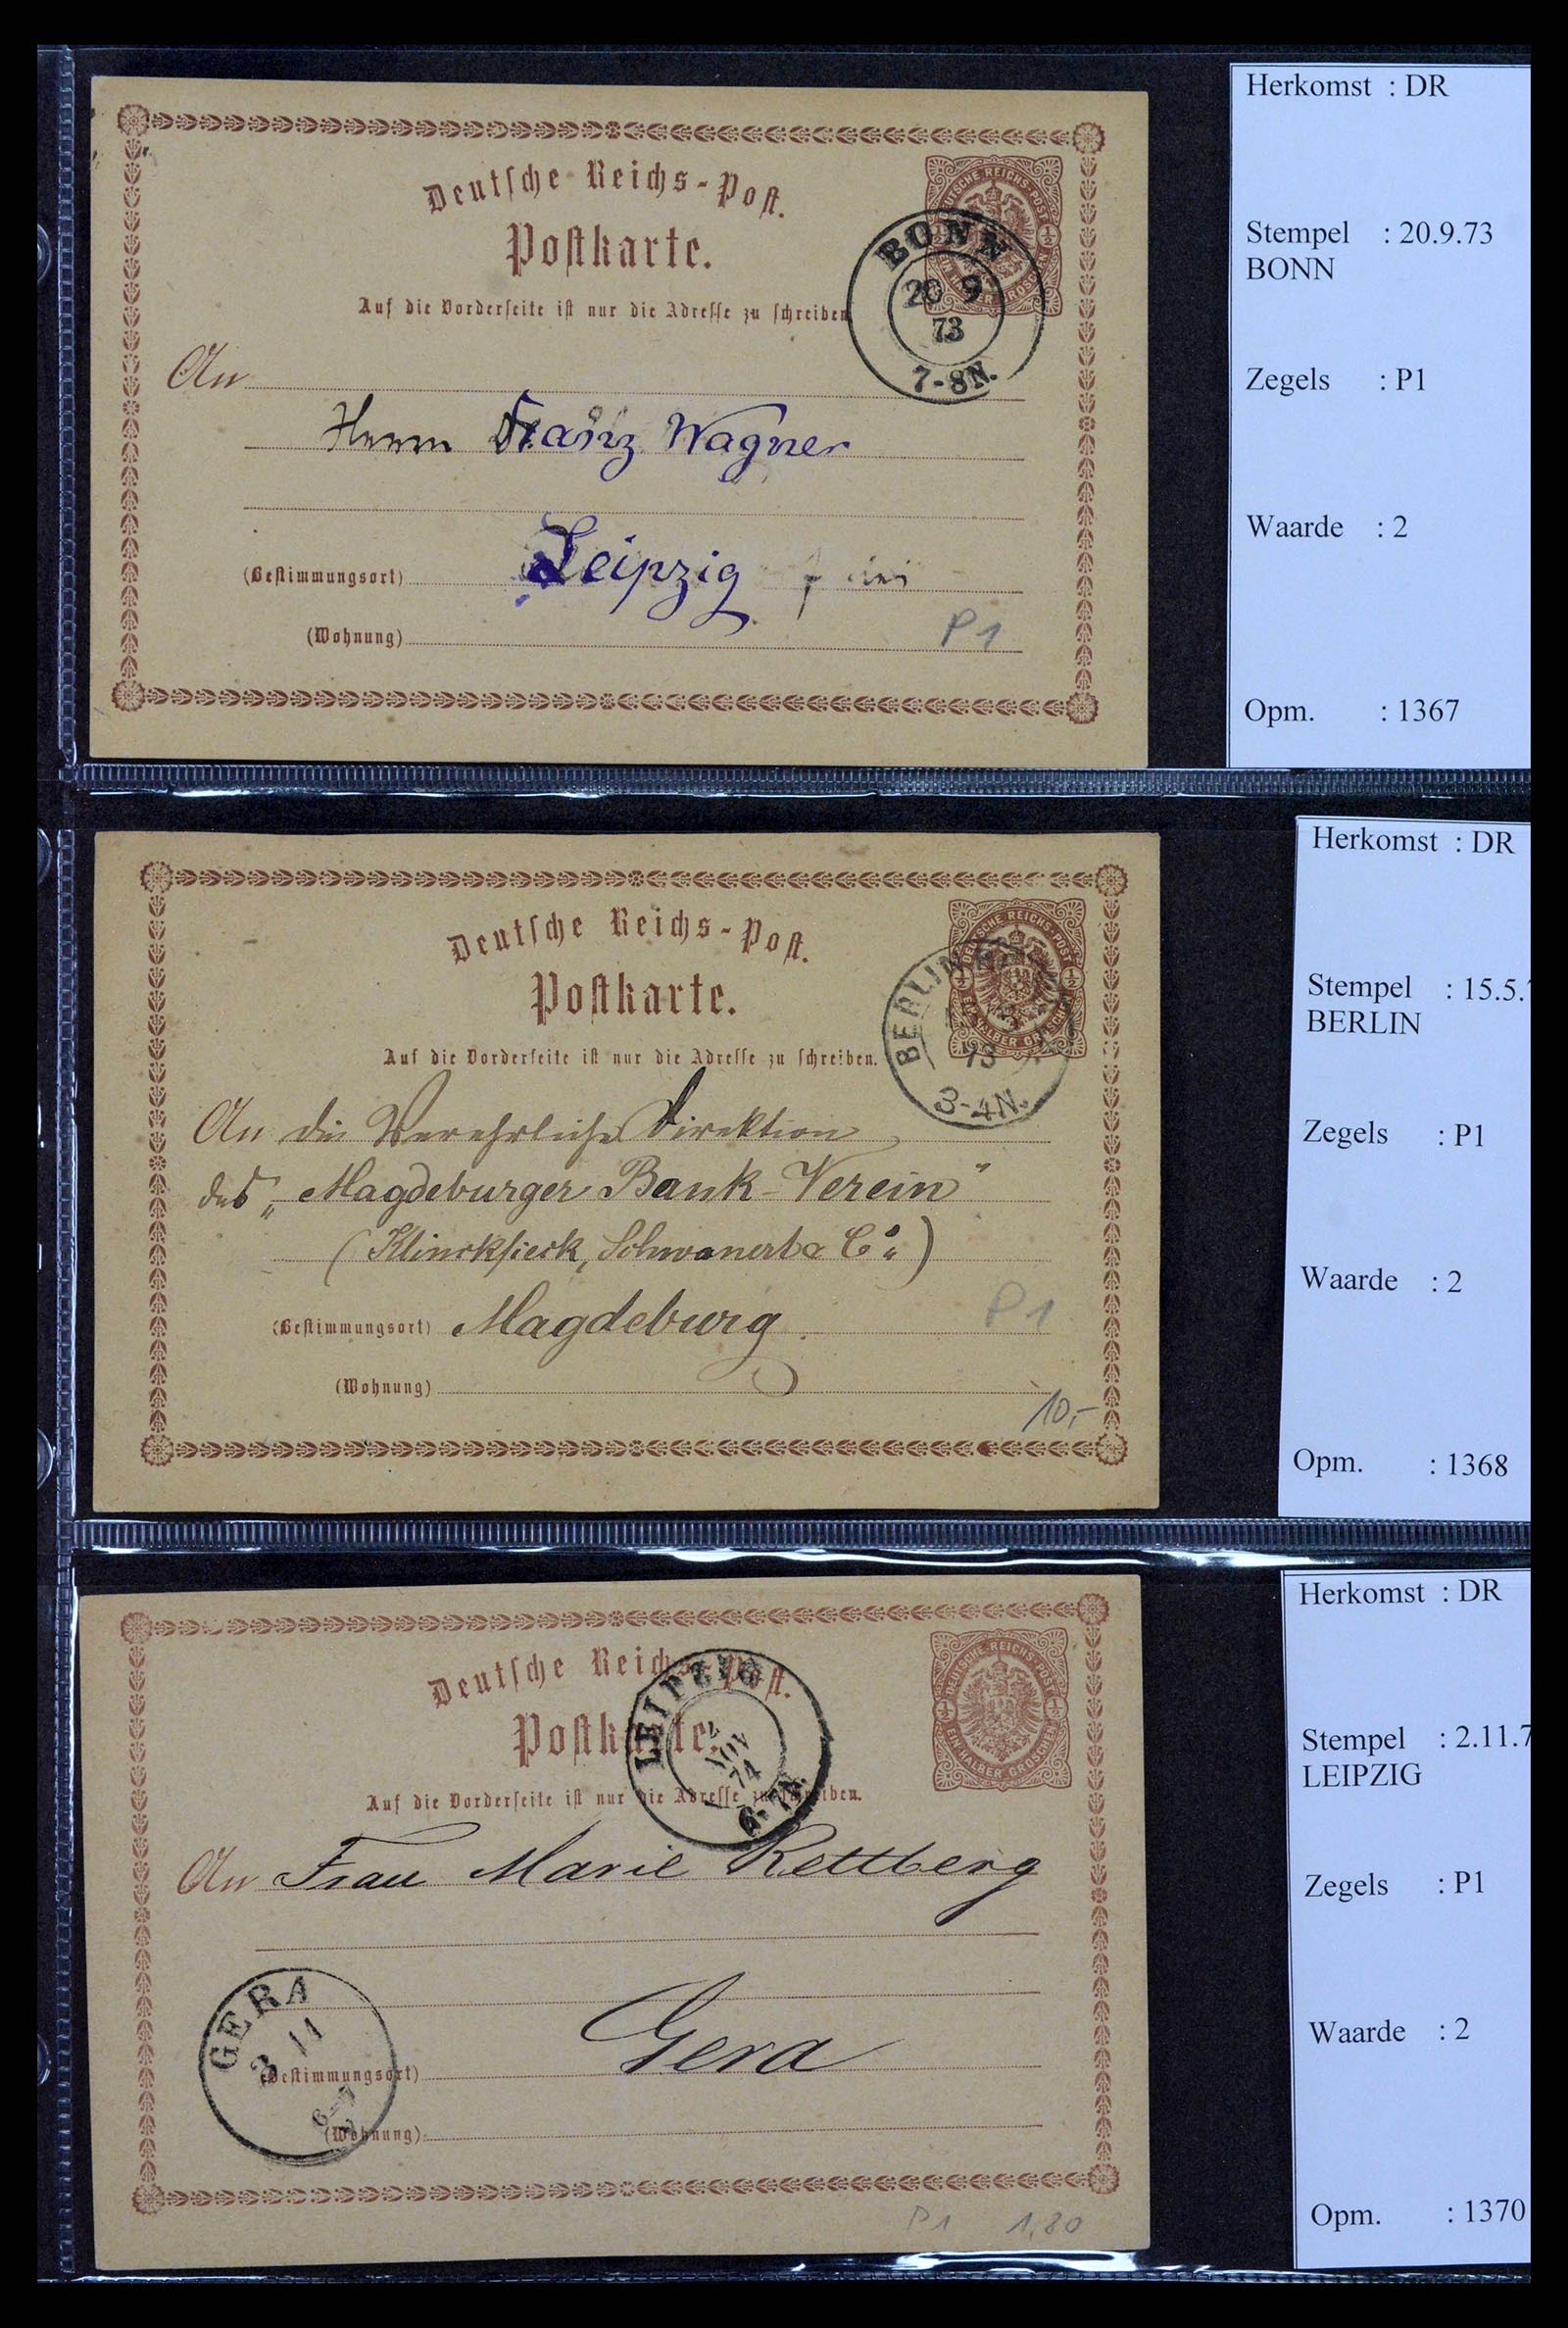 Deutsche Reichs-Post.
Postkarte.
Auf die Vorderseite ist nur die Adresse zu schreiben
DEUTSCHE REICHS-POST
½
GROSCHEN
BONN
20 9
73
7-8N.
An
Herrn Franz Wagner
(Bestimmungsort) Leipzig
(Wohnung)
P1
Herkomst : DR
Stempel : 20.9.73
BONN
Zegels : P1
Waarde : 2
Opm. : 1367
Deutsche Reichs-Post.
Postkarte.
Auf die Vorderseite ist nur die Adresse zu schreiben.
DEUTSCHE REICHS-POST
½ ½
EIN HALBER GROSCHEN
BERLIN
73
3-4N.
An die Verehrliche Direktion
des „Magdeburger Bank-Verein"
(Klincksieck, Schwanert & Co.)
(Bestimmungsort) Magdeburg.
(Wohnung)
P1
10,-
Herkomst : DR
Stempel : 15.5.
BERLIN
Zegels : P1
Waarde : 2
Opm. : 1368
Deutsche Reichs-Post.
Postkarte.
Auf die Vorderseite ist nur die Adresse zu schreiben.
DEUTSCHE REICHS-POST
½ ½
EIN HALBER GROSCHEN
LEIPZIG
2
NOV
74
6-7N.
An Frau Marie Rettberg
Gera
GERA
3 11
(Bestimmungsort)
(Wohnung)
P1 1,80
Herkomst : DR
Stempel : 2.11.7
LEIPZIG
Zegels : P1
Waarde : 2
Opm. : 1370